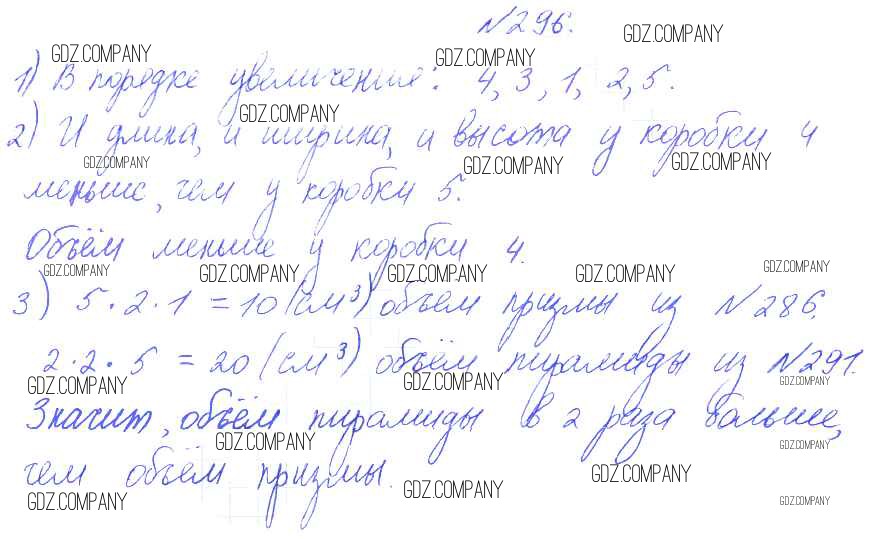 №296.
GDZ.COMPANY GDZ.COMPANY GDZ.COMPANY
1) В порядке увеличения: 4, 3, 1, 2, 5.
GDZ.COMPANY
2) И длина, и ширина, и высота у коробки 4
GDZ.COMPANY GDZ.COMPANY GDZ.COMPANY
меньше, чем у коробки 5.
Объём меньше у коробки 4.
GDZ.COMPANY GDZ.COMPANY GDZ.COMPANY GDZ.COMPANY GDZ.COMPANY
3) 5·2·1 = 10 (см³) объём призмы из №286.
2·2·5 = 20 (см³) объём пирамиды из №291.
GDZ.COMPANY GDZ.COMPANY GDZ.COMPANY
Значит, объём пирамиды в 2 раза больше,
GDZ.COMPANY GDZ.COMPANY
чем объём призмы.
GDZ.COMPANY GDZ.COMPANY GDZ.COMPANY GDZ.COMPANY